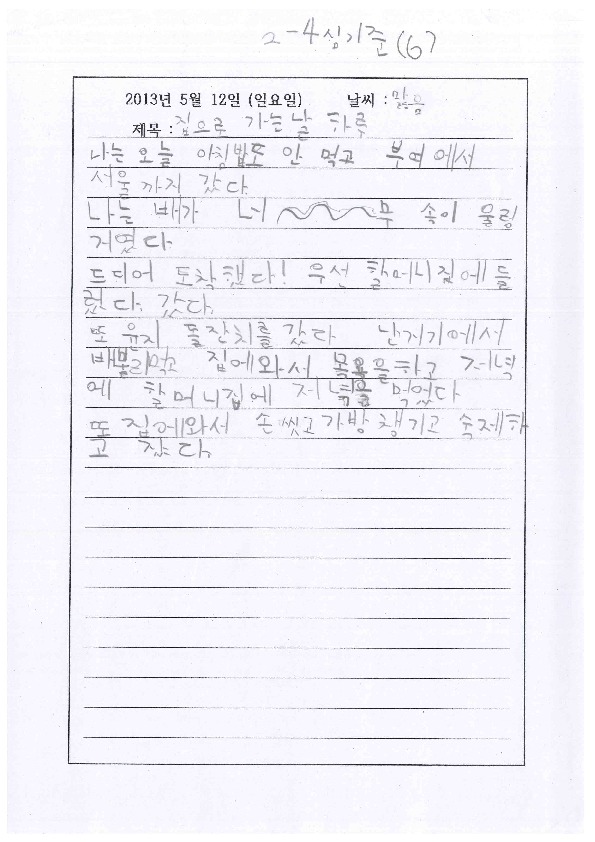 2-4 심기준 (6)
2013년 5월 12일 (일요일) 날씨 : 맑음
제목 : 집으로 가는날 하루
나는 오늘 아침밥도 안 먹고 부여에서
서울까지 갔다
나는 배가 너~~~무 속이 울렁
거렸다
드디어 도착했다! 우선 할머니집에들
렸다. 갔다.
또 윤지 돌잔치를 갔다 난저기에서
배불리먹고 집에와서 목욕을하고 저녁
에 할머니집에 저녁을 먹었다
또 집에와서 손씻고가방챙기고 숙제하
고 잤다.